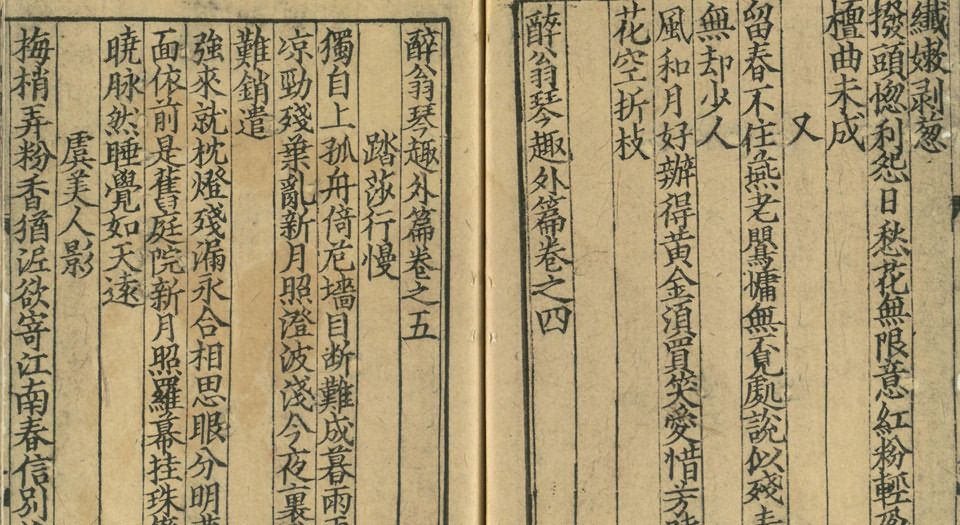 纎嫩剥葱
撥頭惚利怨日愁花無限意紅粉輕
檀曲未成
又
留春不住燕老鸎慵無覔處說似殘
無却少人
風和月好辦得黃金湏買笑愛惜芳
花空折枝
醉翁琴趣外篇卷之四
醉翁琴趣外篇卷之五
踏莎行慢
獨自上孤舟倚危墻目断難成暮雨
凉勁殘葉亂新月照澄波淺今夜裏
難銷遣
強來就枕燈殘漏永合相思眼分明
面依前是舊庭院新月照羅幕挂珠
曉脉然睡覺如天遠
虞美人影
梅梢弄粉香猶涩欲寄江南春信別